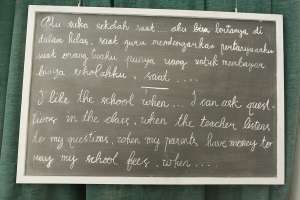 Aku suka sekolah saat... aku bisa bertanya di
dalam kelas, saat guru mendengarkan pertanyaanku
saat orang tuaku punya uang untuk membayar
biaya sekolahku, saat ....
I like the school when... I can ask quest-
tions in the class, when the teacher listens
to my questions, when my parents have money to
pay my school fees, when ....